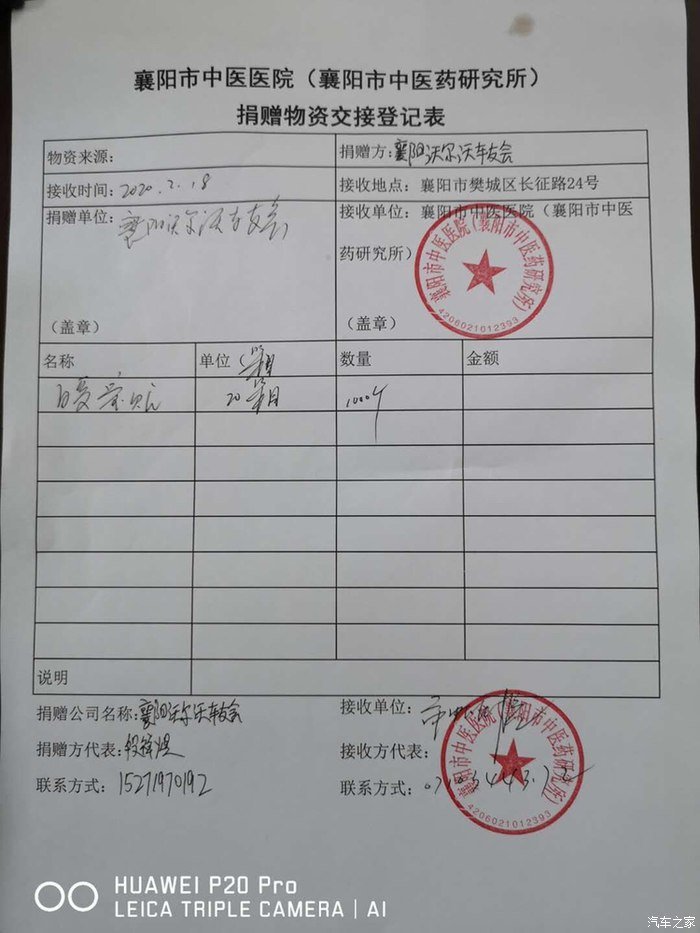 襄阳市中医医院（襄阳市中医药研究所）
捐赠物资交接登记表
物资来源：
捐赠方：襄阳沃尔沃车友会
接收时间：2020.2.18
接收地点：襄阳市樊城区长征路24号
捐赠单位：襄阳沃尔沃车友会
接收单位：襄阳市中医医院（襄阳市中医
药研究所）
襄阳市中医医院（襄阳市中医药研究所）
4206021012393
（盖章）
（盖章）
名称 单位（箱 数量 金额
20箱 1000个
说明
捐赠公司名称：襄阳沃尔沃车友会
接收单位：
捐赠方代表：段锋煜
接收方代表：
联系方式：15271970192
联系方式：
襄阳市中医医院（襄阳市中医药研究所）
4206021012393
HUAWEI P20 Pro
LEICA TRIPLE CAMERA | AI
汽车之家